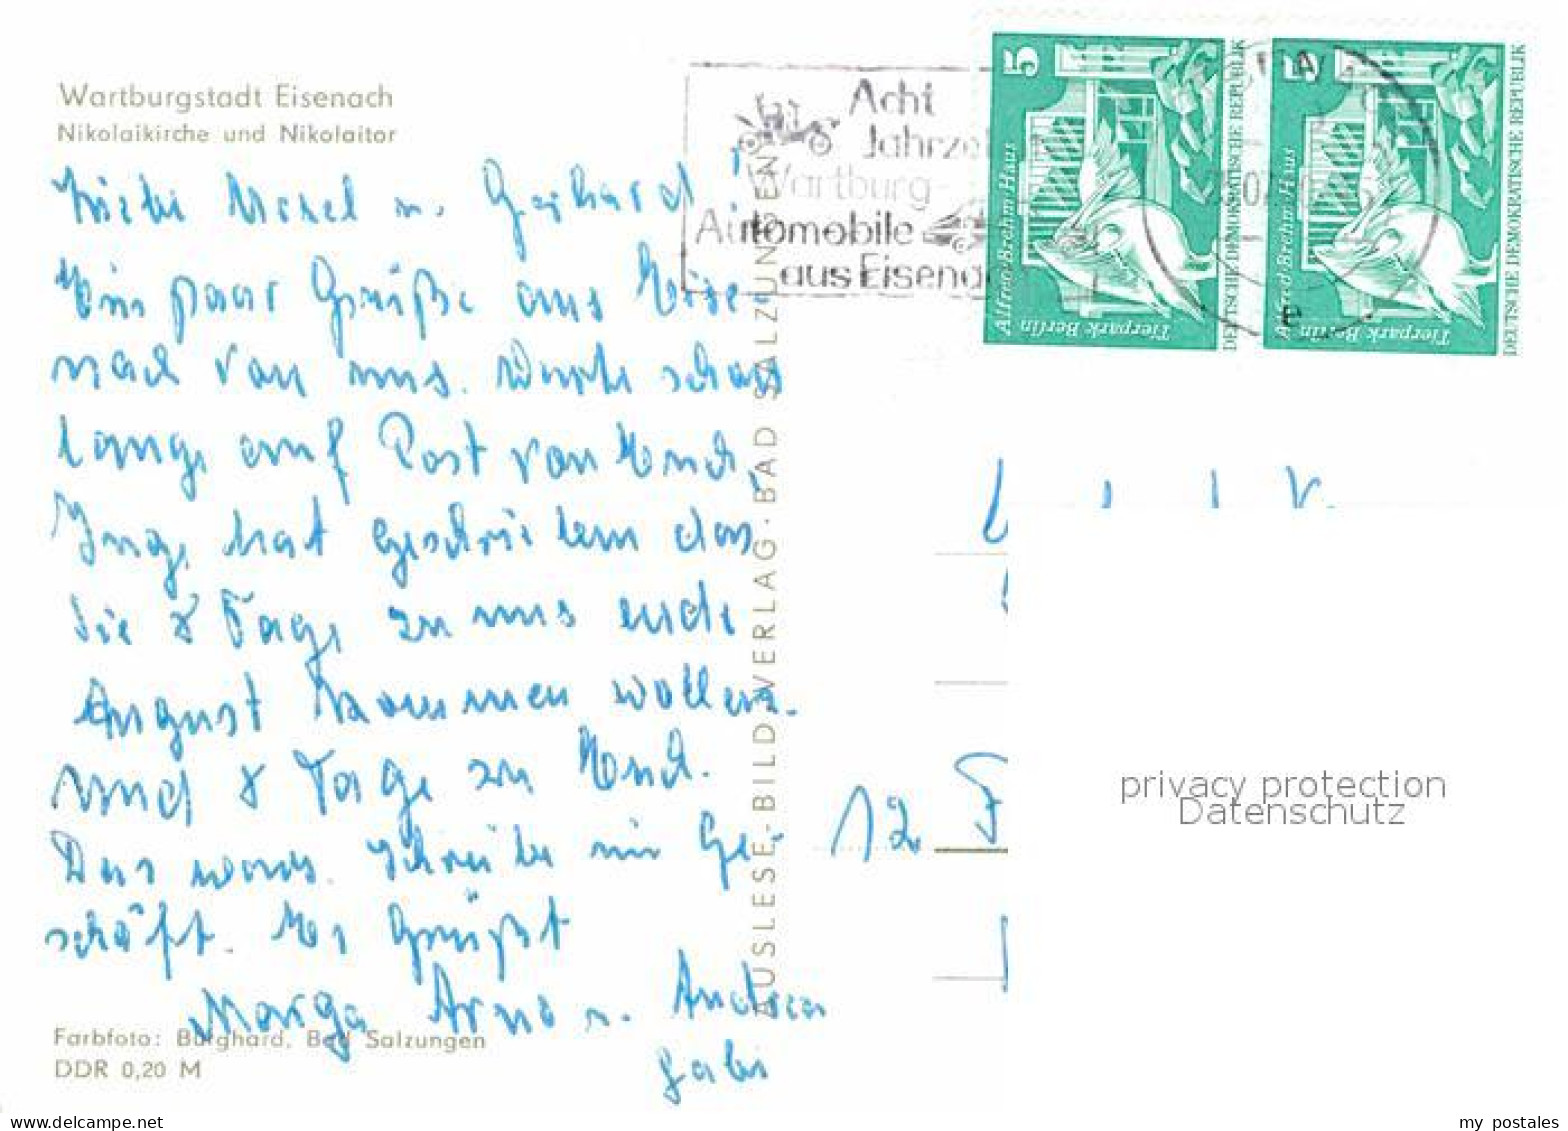 Wartburgstadt Eisenach
Nikolaikirche und Nikolaitor
Liebe Ursel u. Gerhard!
Ein paar Grüße aus Eise-
nach von uns. Warte schon
lange auf Post von Euch,
Inge hat geschrieben das
Sie 8 Tage zu uns ende
August kommen wollen.
und 8 Tage zu Euch.
Das wars. Schreibe im Ge-
schäft. Es Grüßt
Marga Arno u. Andrea
Gabi
Farbfoto: Burghard, Bad Salzungen
DDR 0,20 M
AUSLESE-BILD-VERLAG · BAD SALZUNGEN
Acht
Jahrze
Wartburg-
Automobile
aus Eisenac
5
Alfred-Brehm-Haus
Tierpark Berlin
DEUTSCHE DEMOKRATISCHE REPUBLIK
5
Alfred-Brehm-Haus
Tierpark Berlin
DEUTSCHE DEMOKRATISCHE REPUBLIK
12
privacy protection
Datenschutz
my postales